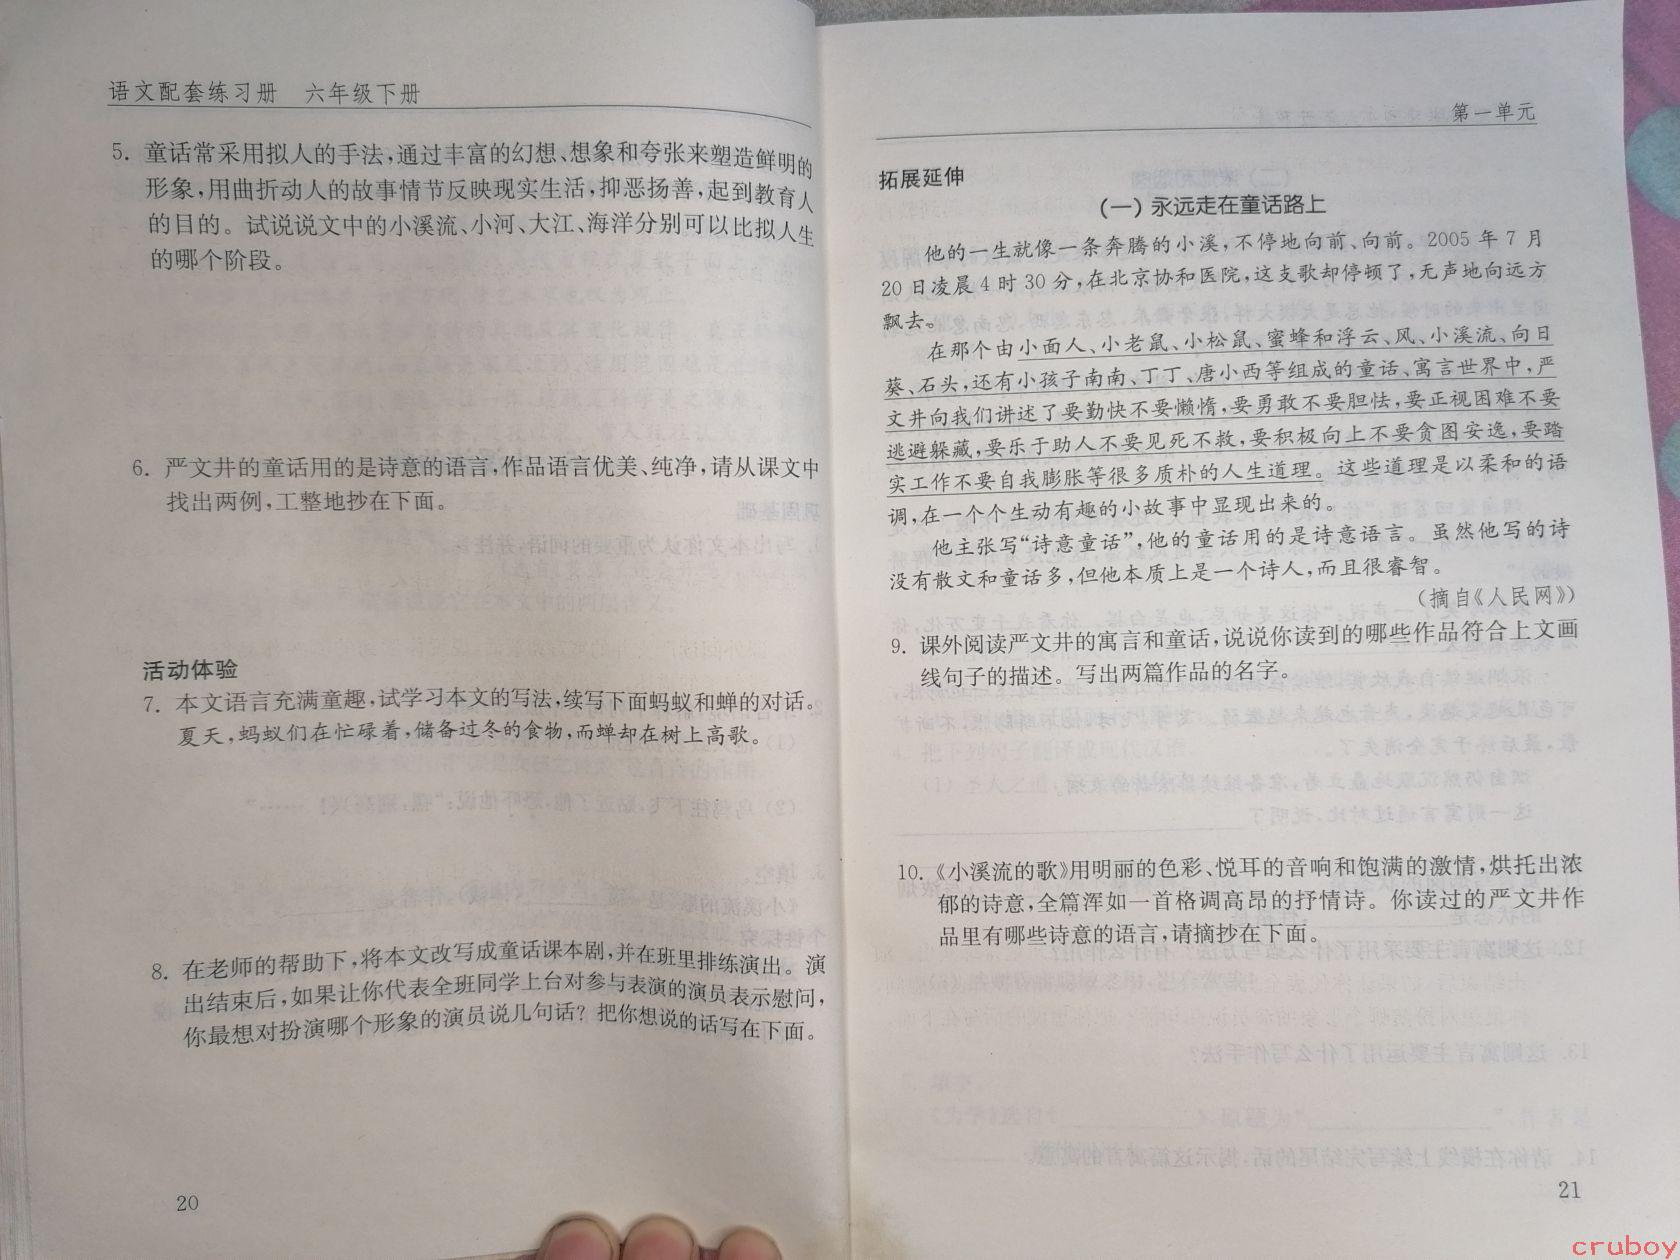 语文配套练习册 六年级下册
5. 童话常采用拟人的手法,通过丰富的幻想、想象和夸张来塑造鲜明的
形象,用曲折动人的故事情节反映现实生活,抑恶扬善,起到教育人
的目的。试说说文中的小溪流、小河、大江、海洋分别可以比拟人生
的哪个阶段。
6. 严文井的童话用的是诗意的语言,作品语言优美、纯净,请从课文中
找出两例,工整地抄在下面。
活动体验
7. 本文语言充满童趣,试学习本文的写法,续写下面蚂蚁和蝉的对话。
夏天,蚂蚁们在忙碌着,储备过冬的食物,而蝉却在树上高歌。
8. 在老师的帮助下,将本文改写成童话课本剧,并在班里排练演出。演
出结束后,如果让你代表全班同学上台对参与表演的演员表示慰问,
你最想对扮演哪个形象的演员说几句话?把你想说的话写在下面。
20
第一单元
拓展延伸
(一)永远走在童话路上
他的一生就像一条奔腾的小溪,不停地向前、向前。2005 年 7 月
20 日凌晨 4 时 30 分,在北京协和医院,这支歌却停顿了,无声地向远方
飘去。
在那个由小面人、小老鼠、小松鼠、蜜蜂和浮云、风、小溪流、向日
葵、石头,还有小孩子南南、丁丁、唐小西等组成的童话、寓言世界中,严
文井向我们讲述了要勤快不要懒惰,要勇敢不要胆怯,要正视困难不要
逃避躲藏,要乐于助人不要见死不救,要积极向上不要贪图安逸,要踏
实工作不要自我膨胀等很多质朴的人生道理。这些道理是以柔和的语
调,在一个个生动有趣的小故事中显现出来的。
他主张写“诗意童话”,他的童话用的是诗意语言。虽然他写的诗
没有散文和童话多,但他本质上是一个诗人,而且很睿智。
(摘自《人民网》)
9. 课外阅读严文井的寓言和童话,说说你读到的哪些作品符合上文画
线句子的描述。写出两篇作品的名字。
10. 《小溪流的歌》用明丽的色彩、悦耳的音响和饱满的激情,烘托出浓
郁的诗意,全篇浑如一首格调高昂的抒情诗。你读过的严文井作
品里有哪些诗意的语言,请摘抄在下面。
21
cruboy